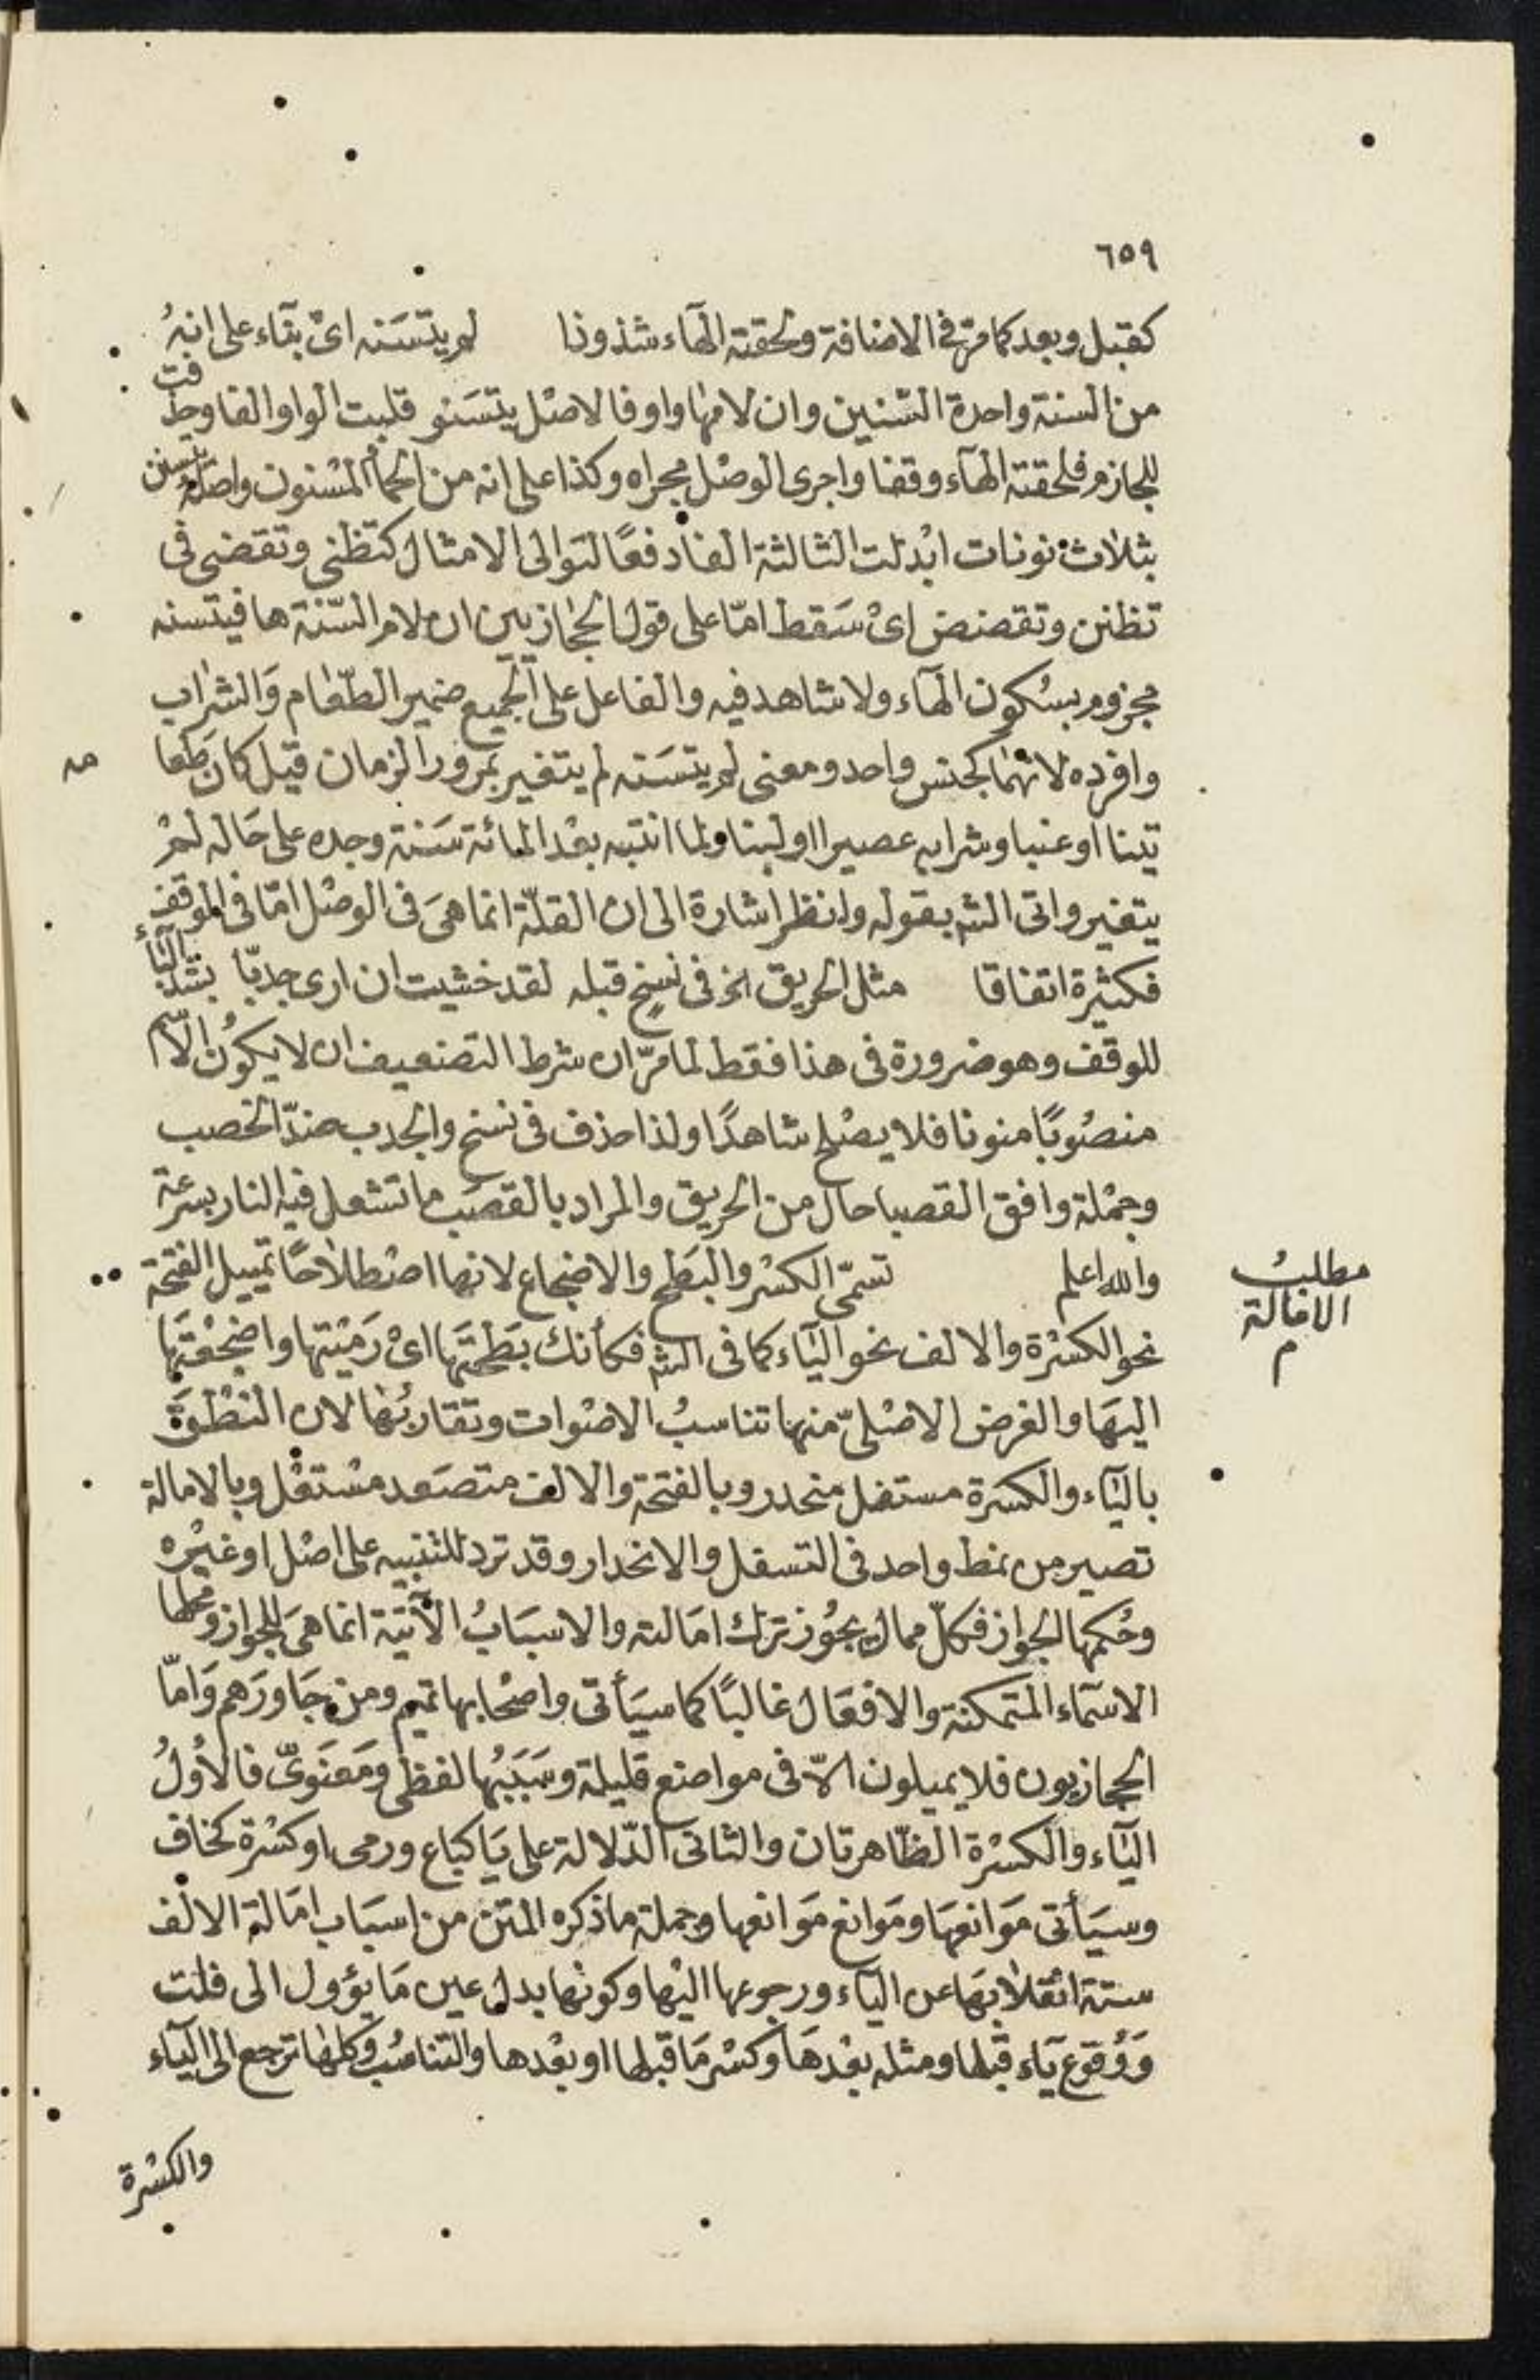 ٦٥٩
كقبل وبعد كما مرّ في الاضافة ولحقته الهآء شذوذا لم يتسَنه اىْ بنآء على انهُ
من السنة واحدة السّنين وان لامها واو فالاصْل يتسَنو قلبت الواو الفا وحذفت
للجازم فلحقته الهآء وقفا واجرى الوصْل مجراه وكذا على انه من الحمأ المسْنون واصله يتسنن
بثلاث نونات ابْدلت الثالثة الفا دفعًا لتوالى الامثال كتظنى وتقضى فى
تظنن وتقضض اىْ سَقط امّا على قول الحجازيين ان لام السّنة ها فيتسنه
مجزوم بسُكون الهآء ولا شاهد فيه والفاعل على الجميع ضمير الطّعام وَالشراب
وافرده لانهما كجنس واحد ومعنى لم يتسَنه لم يتغير بمرور الزمان قيل كان طَعامه
تينا او عنبا وشرابه عصيرا او لبنا ولما انتبه بعْد المائة سَنة وجده على حَاله لمْ
يتغير واتى الشہ بقوله وانظر اشارة الى ان القلّة انما هىَ فى الوصْل امّا فى الوقف
فكثيرة اتفاقا مثل الحريق الخ فى نسخ قبله لقد خشيت ان ارى جدبّا بتشديد البآء
للوقف وهو ضرورة فى هذا فقط لما مرّ ان شرط التضعيف ان لا يكوُن الاسم
منصُوبًا منونا فلا يصْلح شاهدًا ولذا حذف فى نسخ والجدب ضدّ الخصب
وجمْلة وافق القصبا حال من الحريق والمراد بالقصَب ما تشعل فيه النار بسرعة
والله اعلم تسمّى الكسْر والبَطح والاضجاع لانها اصْطلاحًا تمييل الفتحة
نحو الكسْرة والالف نحو اليَآء كما فى الشہ فكأنك بَطحْتَها اىْ رَميْتها واضجعْتَها
اليهَا والغرض الاصْلىّ منها تناسبُ الاصْوات وتقاربُها لان النطْق
بالياء والكسرة مستفل منحدر وبالفتحة والالف متصَعد مسْتعْل وبالامالة
تصير من نمط واحد فى التسفل والانحدار وقد ترد للتنبيه على اصْل او غيْره
وحُكمها الجواز فكلّ ممال يجوُز ترك امَالته والاسبَابُ الآتية انما هىَ للجواز ومحلها
الاسْمآء المتمكنة والافعَال غالبًا كما سيَأتى واصْحابها تميم ومن جَاورَهم وَامّا
الحجازيون فلا يميلون الاّ فى مواضع قليلة وسَبَبُها لفظى ومَعنَوىّ فالاَوُلُ
اليَآء والكسْرة الظّاهرتان والثانى الدّلالة على يَا كباع ورمى او كسْرة كخاف
وسيَأتى مَوانعهَا ومَوانع مَوانعها وجملة ما ذكره المتن من اسبَاب امَالة الالف
ستة انْقلابهَا عن اليآء ورجوعها اليْها وكونها بدل عين مَا يؤول الى فلت
وَوُقوع يَآء قبْلها ومثله بعْدهَا وكسْر مَا قبلها او بعْدها والتناسُب وكلها ترجع الى اليآء
والكسْرة
مطلبُ
الامالة
م